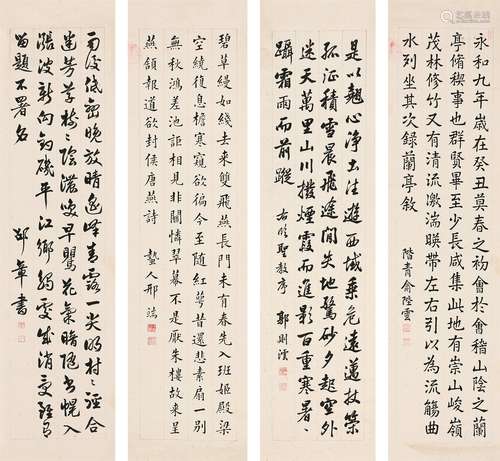 永和九年歲在癸丑莫春之初會稽山陰之蘭
亭脩稧事也群賢畢至少長咸集此地有崇山峻嶺
茂林修竹又有清流激湍暎帶左右引以為流觴曲
水列坐其次錄蘭亭敘 階青俞陛雲
是以翹心淨土法遊西域乘危遠邁杖策
孤征積雪晨飛途間失地驚砂夕起空外
迷天萬里山川撥煙霞而進影百重寒暑
躡霜雨而前蹤 右臨聖教序 郭則澐
碧草縵如綫去來雙飛燕長門未有春先入班姬殿梁
空繞復息檐寒窺欲徧今至隨紅萼昔還悲素扇一別
無秋鴻差池詎相見非關憐翠幕不是厭朱樓故來呈
燕頷報道欲封侯唐燕詩 蟄人邢端
雨後低雲晚放晴遙峰青露一尖明村〻涇合
迷芳草樹〻陰濃喚早鶯花氣暗隨書幌入
漲波新向釣磯平江鄉觸處成消受
留題不署名 邵章書